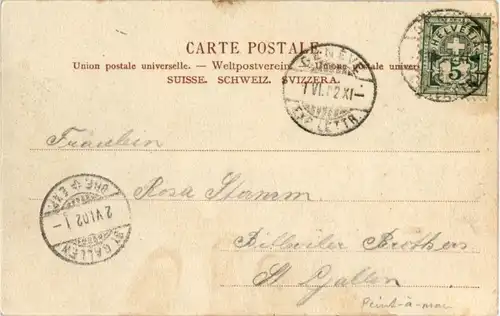 CARTE POSTALE.
Union postale universelle. — Weltpostverein. — Unione postale univers
SUISSE. SCHWEIZ. SVIZZERA.
HELVETIA
5
GENÈVE
1 VI.02 XI–
EXP. LETTR.
Fräulein
Rosa Stamm
Brothers
St. Gallen
ST GALLEN
2 VI.02 1